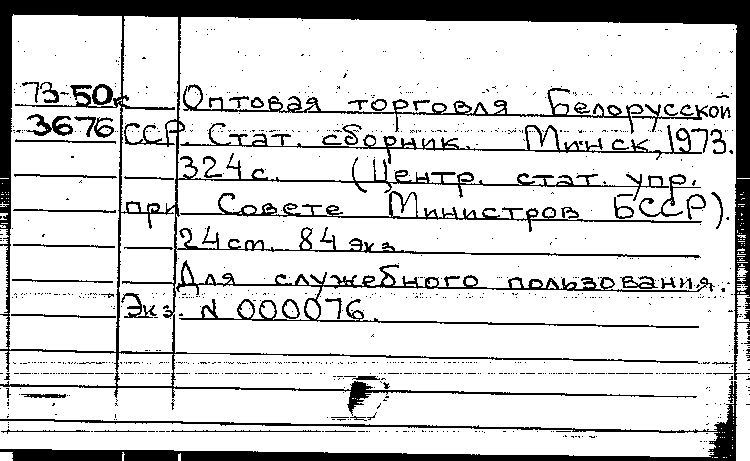 73-50к Оптовая торговля Белорусской
3676 ССР. Стат. сборник. Минск, 1973.
324 с. (Центр. стат. упр.
при Совете Министров БССР).
24 cm. 84 экз.
Для служебного пользования.
Экз. N 000076.